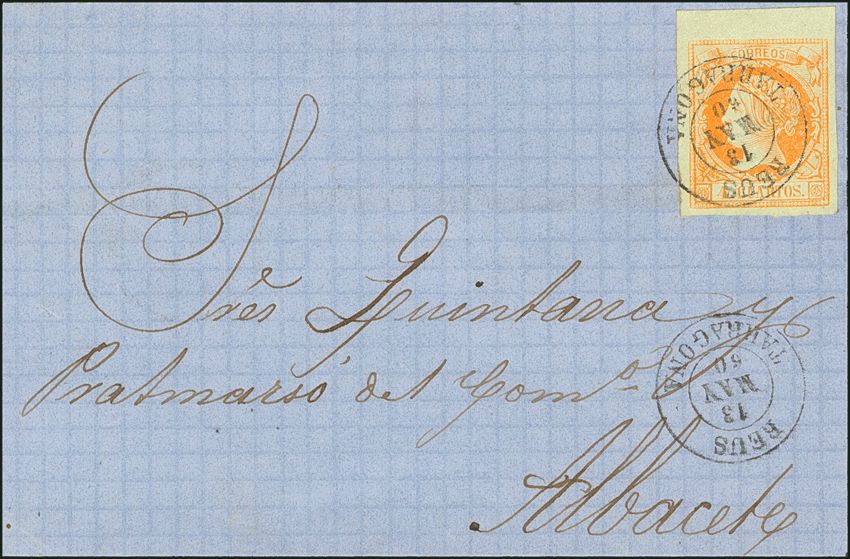 CORREOS
4 CUARTOS.
REUS
13
MAY
60
TARRAGONA
Sres Quintana y
Pratmarsó del Como
Albacete
REUS
13
MAY
60
TARRAGONA